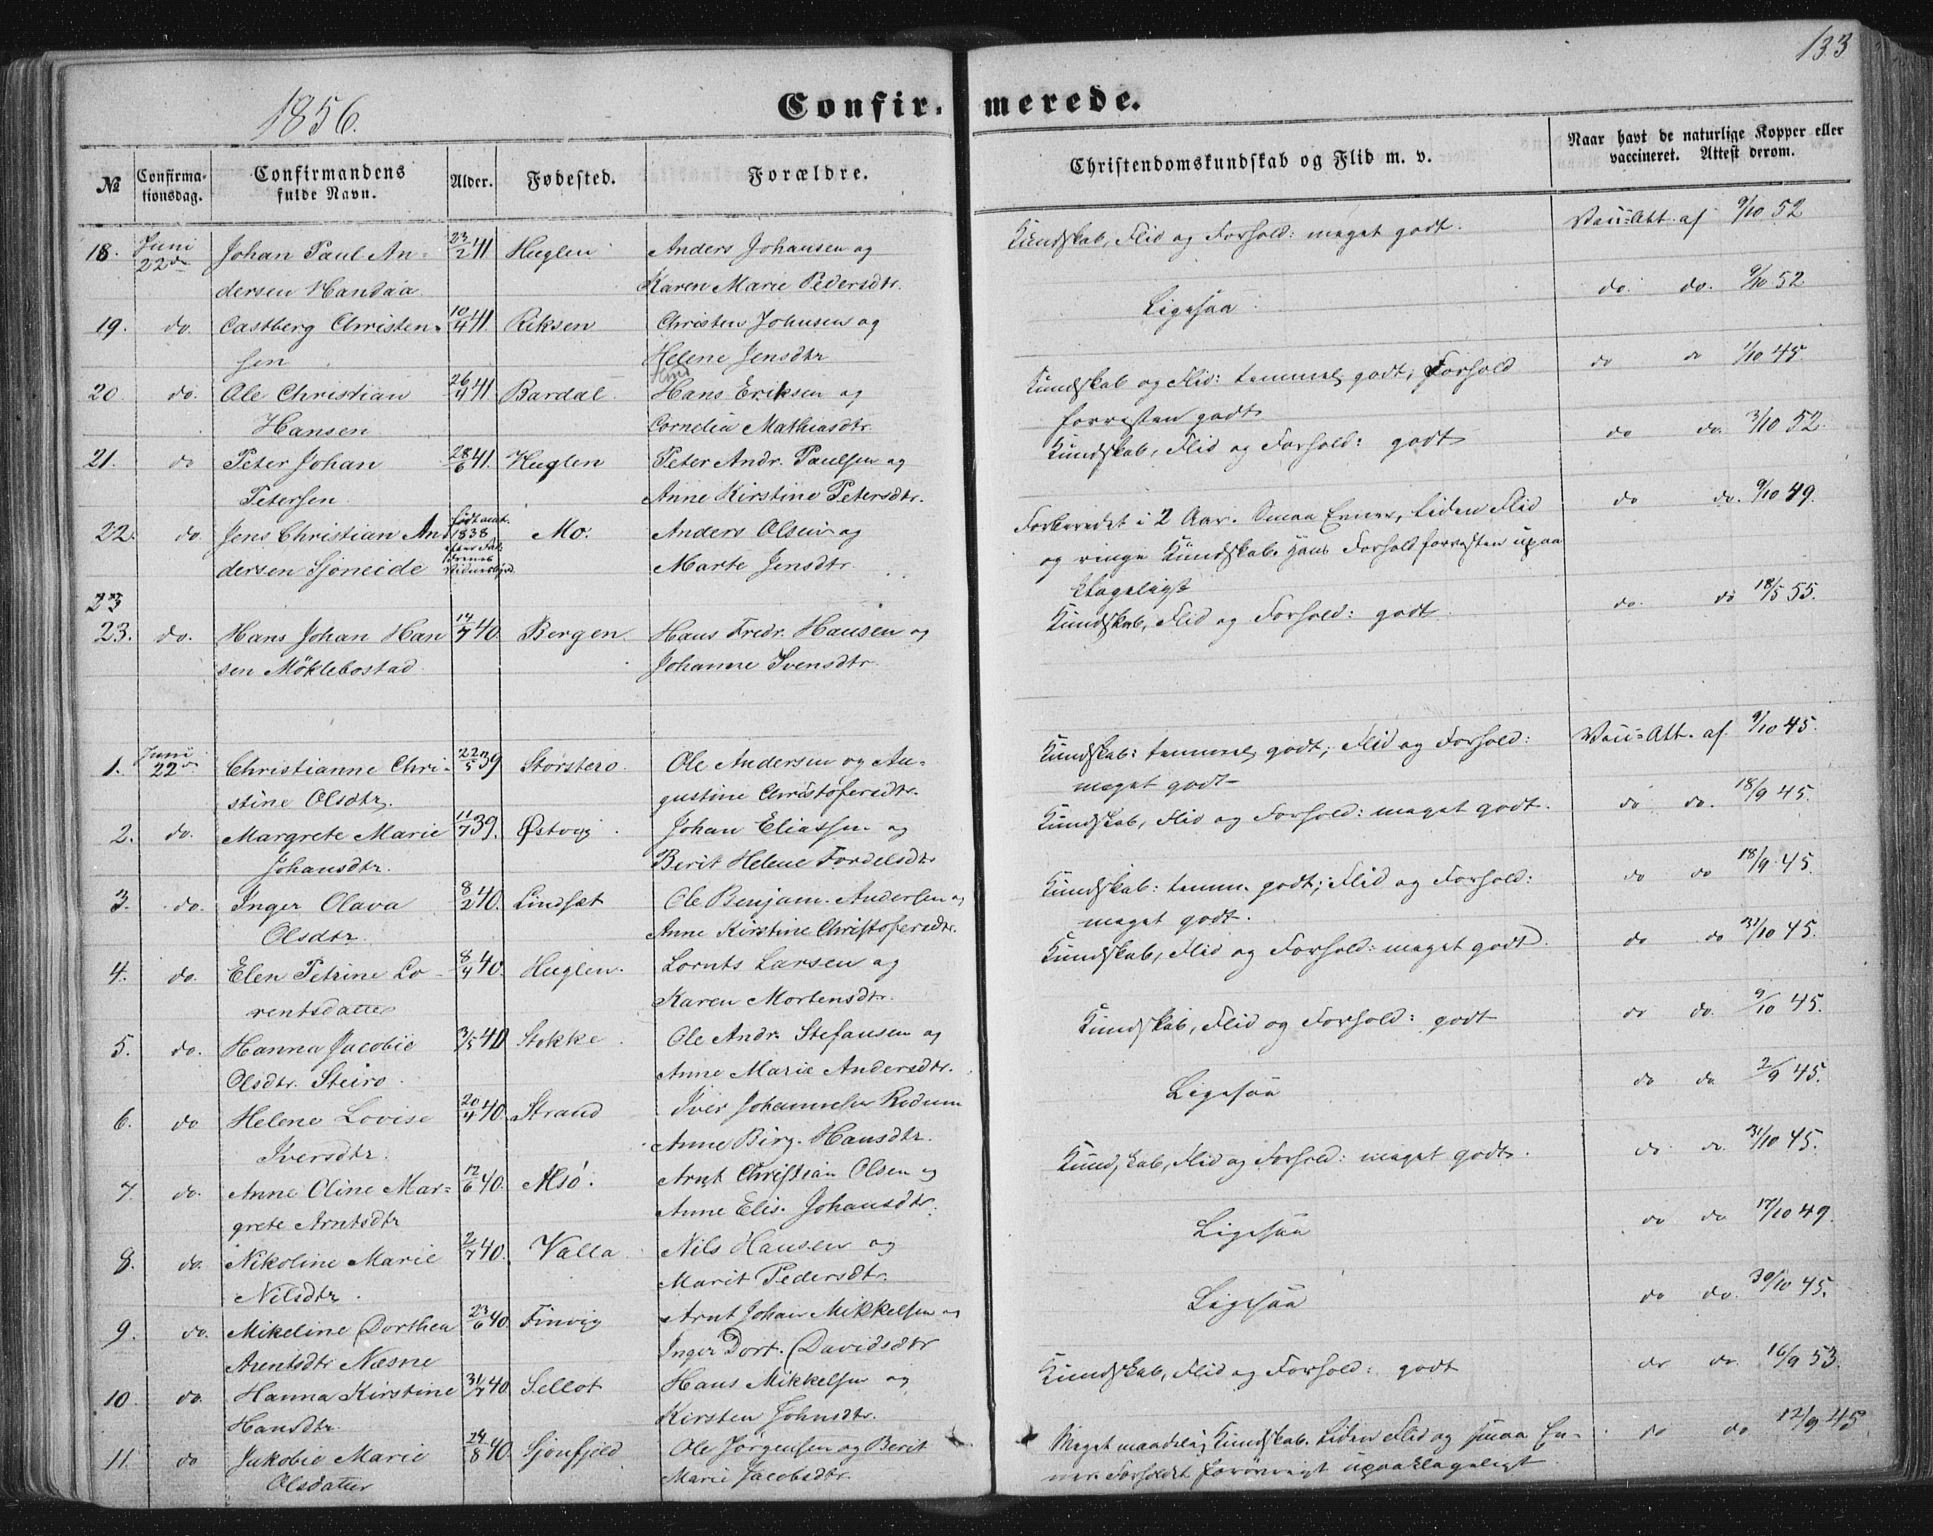 133
1856.
Confir- merede.
№ Confirmationsdag. Confirmandens fulde Navn. Alder. Fødested. Forældre. Christendomskundskab og Flid m. v. Naar havt de naturlige Kopper eller vaccineret. Attest derom.
18. Juni 22de Johan Paul An- 23/2 41 Huglen Anders Johansen og Kundskab, Flid og Forhold: meget godt. Vacc-Att. af 9/10 52
dersen Handaa Karen Marie Pedersdtr.
19. do. Castberg Christen- 10/4 41. Riksen Christen Johnsen og Ligesaa do. do. 9/10 52
sen Helene Jensdtr
20. do. Ole Christian 26/4 41 Bardal Hans Eriksen og Kundskab og Flid: temmel. godt; Forhold do do 1/10 45
Hansen Cornelia Mathiasdtr. forresten godt
21. do Peter Johan 28/6 41. Huglen Peter Andr. Paulsen og Kundskab, Flid og Forhold: godt do do. 3/10 52.
Petersen Anne Kirstine Petersdtr.
22. do. Jens Christian An- født 1838 Mo. Anders Olsen og Forberedet i 2 Aar. Smaa Evner, liden Flid do do. 9/10 49.
dersen Sjoneide Marte Jensdtr og ringe Kundskab. Hans Forhold forresten upaa
klageligt
23
23. do. Hans Johan Han 14/7 40. Bergen Hans Fredr. Hansen og Kundskab, Flid og Forhold: godt do. do 18/5 55.
sen Möklebostad Johanne Svensdtr.
1. Juni 22de Christianne Chri- 22/5 39 Störstero. Ole Andersen og Au- Kundskab: temmel. godt; Flid og Forhold: Vacc-Att. af 9/10 45.
stine Olsdtr. gustine Christofersdtr. meget godt
2. do. Margrete Marie 11/7 39. Østvig Johan Eliassen og Kundskab, Flid og Forhold: meget godt. do do. 18/9 45.
Johansdtr. Berit Helene Tordelsdtr
3. do. Inger Olava 8/2 40. Lindset Ole Benjam. Andersen og Kundskab: temm. godt; Flid og Forhold: do do 18/9 45.
Olsdtr. Anne Kirstine Christofersdtr. meget godt.
4. do. Elen Petrine Lo- 8/4 40. Huglen. Lornts Larsen og Kundskab, Flid og Forhold: meget godt. do do 31/10 45.
rentsdatter Karen Mortensdtr.
5. do. Hanna Jacobie 3/5 40 Stokke Ole Andr. Stefansen og Kundskab, Flid og Forhold: godt do do. 9/10 45.
Olsdtr. Steiro. Anne Marie Andersdtr.
6. do Helene Lovise 20/4 40. Strand Iver Johannesen Rödum Ligesaa do do. 2/9 45.
Iversdtr. Anne Birg. Hansdtr.
7. do. Anne Oline Mar- 12/6 40. Alsö. Arnt Christian Olsen og Kundskab, Flid og Forhold: meget godt. do do. 31/10 45.
grete Arntsdtr Anne Elis. Johansdtr.
8. do. Nikoline Marie 2/7 40. Valla Nils Hansen og Ligesaa do do 17/10 49.
Nilsdtr. Marit Pedersdtr.
9. do. Mikeline Dorthea 23/6 40. Finvig Arnt Johan Mikkelsen og Ligesaa do do. 30/10 45.
Arentsdtr Næsne Inger Dort. Davidsdtr
10 do. Hanna Kirstine 31/7 40. Sellot Hans Mikkelsen og Kundskab, Flid og Forhold: godt do do. 16/9 53.
Hansdtr. Kirsten Johnsdtr.
11. do Jakobie Marie 24/8 40. Sjonfjeld Ole Jørgensen og Berit Meget maadelig Kundskab. Liden Flid og smaa Ev- do do 12/9 45
Olsdatter Marie Jacobsdtr. ner. Forholdet forøvrigt upaaklageligt.